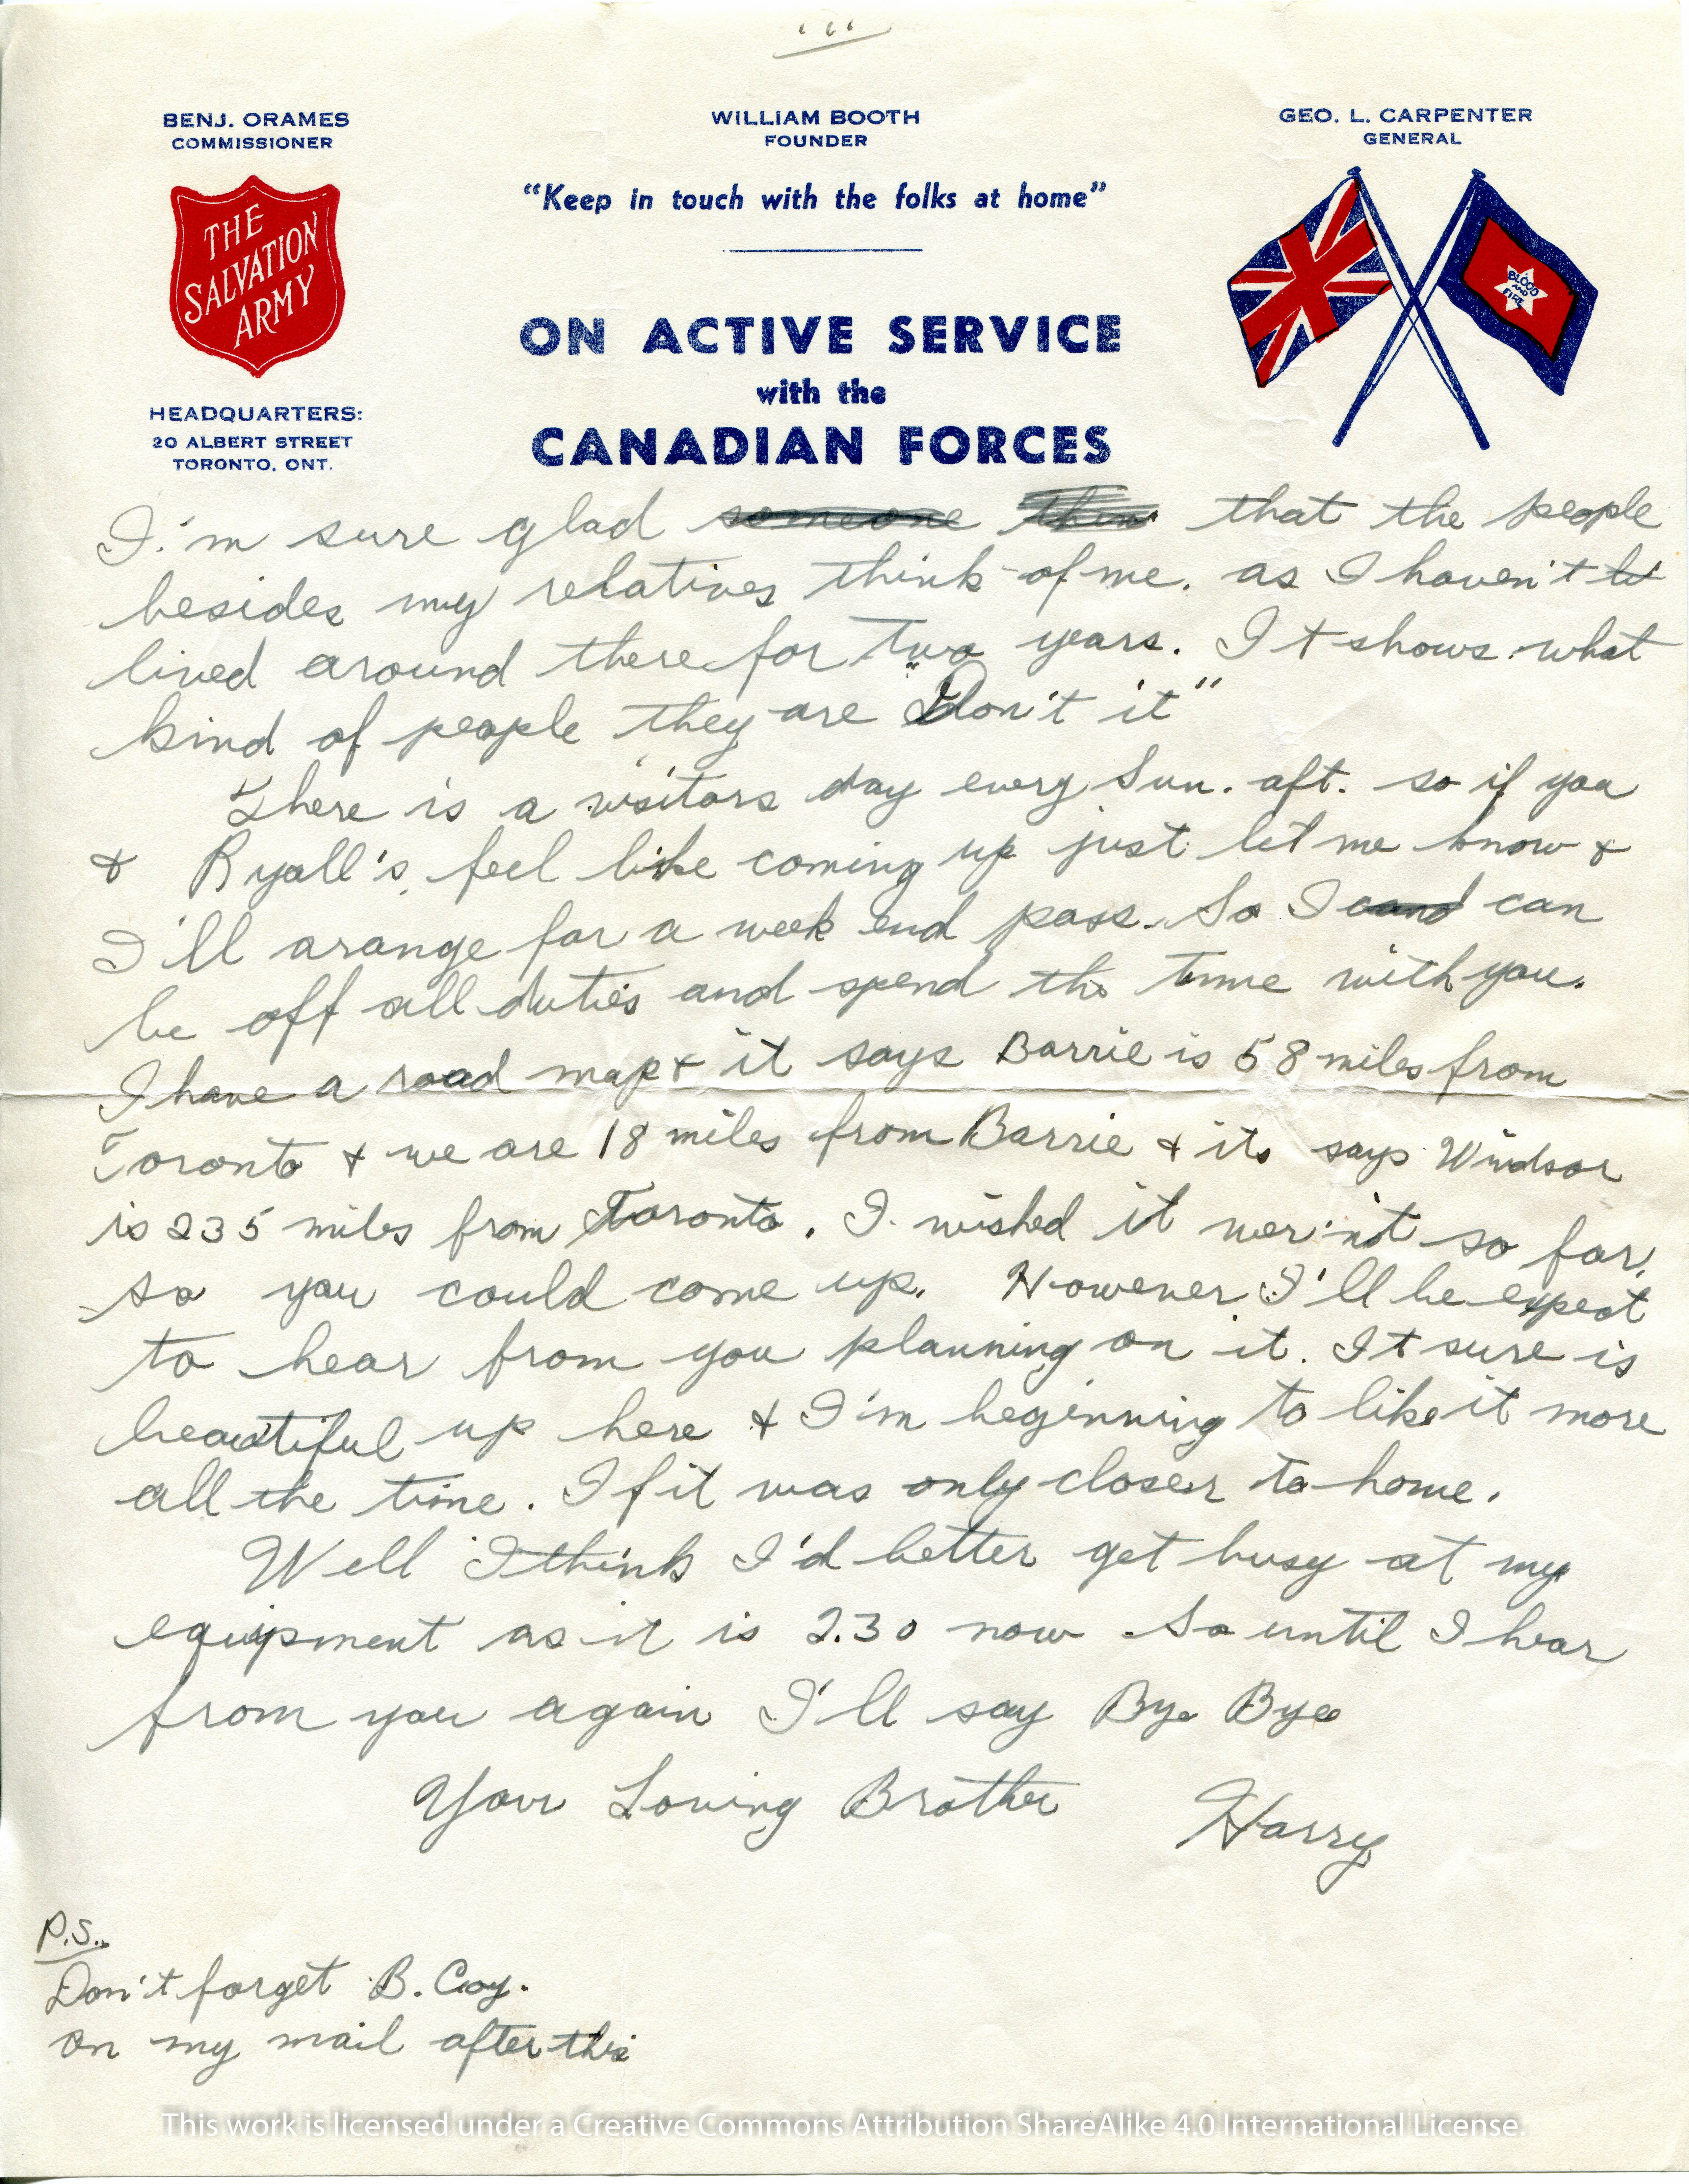 BENJ. ORAMES
COMMISSIONER
WILLIAM BOOTH
FOUNDER
GEO. L. CARPENTER
GENERAL
"Keep in touch with the folks at home"
THE
SALVATION
ARMY
BLOOD
AND
FIRE
ON ACTIVE SERVICE
with the
CANADIAN FORCES
HEADQUARTERS:
20 ALBERT STREET
TORONTO, ONT.
I'm sure glad someone that the people
besides my relatives think of me. as I haven't
lived around there for two years. It shows what
kind of people they are "Don't it"
There is a visitors day every Sun. aft. so if you
& Ryall's feel like coming up just let me know &
I'll arange for a week end pass. So I can
be off all duties and spend the time with you.
I have a road map & it says Barrie is 58 miles from
Toronto & we are 18 miles from Barrie & its says Windsor
is 235 miles from Toronto. I wished it wer'nt so far,
so you could come up. However I'll be expect
to hear from you planning on it. It sure is
beautiful up here & I'm beginning to like it more
all the time. If it was only closer to home.
Well I think I'd better get busy at my
equipment as it is 2.30 now So until I hear
from you again I'll say Bye Bye
Your Loving Brother Harry
P.S.
Don't forget B. Coy.
on my mail after this
This work is licensed under a Creative Commons Attribution ShareAlike 4.0 International License.